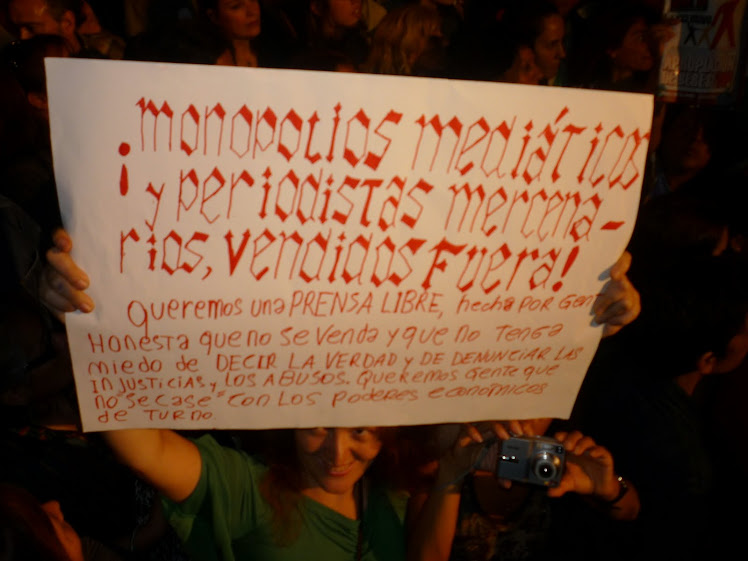 ¡monopolios mediáticos
y periodistas mercena-
rios, vendidos Fuera!
Queremos una PRENSA LIBRE, hecha POR Gent
Honesta que no se Venda y que no Tenga
miedo de DECIR LA VERDAD y DE DENUNCIAR LAS
INJUSTICIAS y LOS ABUSOS. Queremos Gente que
no "se case" con LOS PODERES económicos
de TURNO.